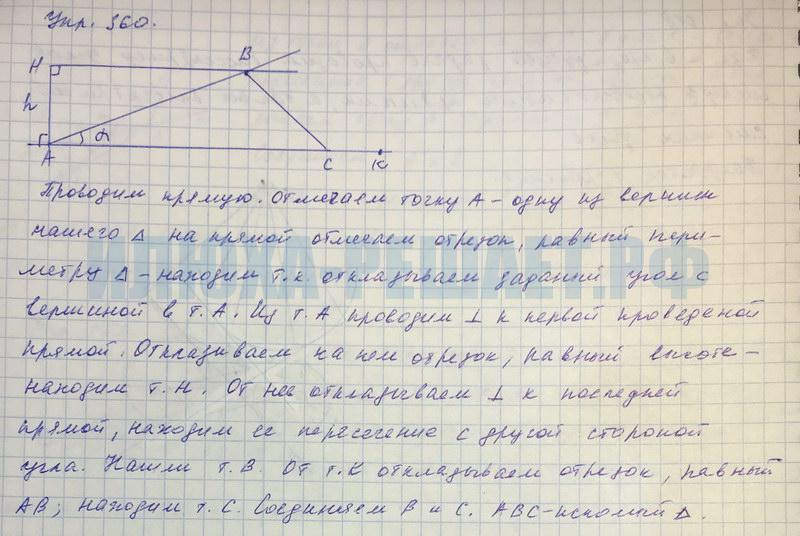 Упр. 360.
H
B
h
α
A
C
K
Проводим прямую. Отмечаем точку A – одну из вершин
нашего Δ на прямой отмечаем отрезок, равный пери-
метру Δ – находим т.к откладываем заданный угол с
вершиной в т. А. Из т. А проводим ⊥ к первой проведеной
прямой. Откладываем на нем отрезок, равный высоте –
находим т. Н. От нее откладываем ⊥ к последней
прямой, находим ее пересечение с другой стороной
угла. Нашли т. В. От т. К откладываем отрезок, равный
АВ; находим т. С. Соединяем В и С. АВС-искомый Δ.
ИЛЮХА-РЕШАЕТ.РФ